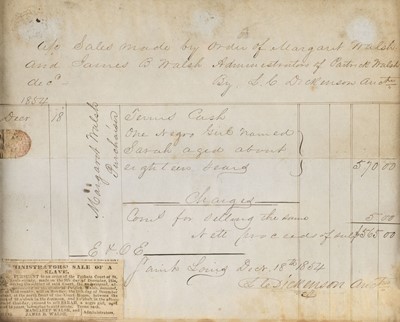 A/c Sales made by Order of Margaret Walsh
and James B Walsh Administrators of Patrick Walsh
decd
By S. C. Dickinson Auctr
1854
Decr 18
Margaret Walsh
Purchaser
Terms Cash
One Negro Girl named
Sarah aged about
eighteen years
570.00
Charges
Comn for selling the same
5.00
Nett proceeds of sale
$565.00
E & O E
Saint Louis Decr 18th 1854
S C Dickinson Auctr
MINISTRATORS' SALE OF A
SLAVE.
MARGARET WALSH, and
JAMES B. WALSH,
Administrators.